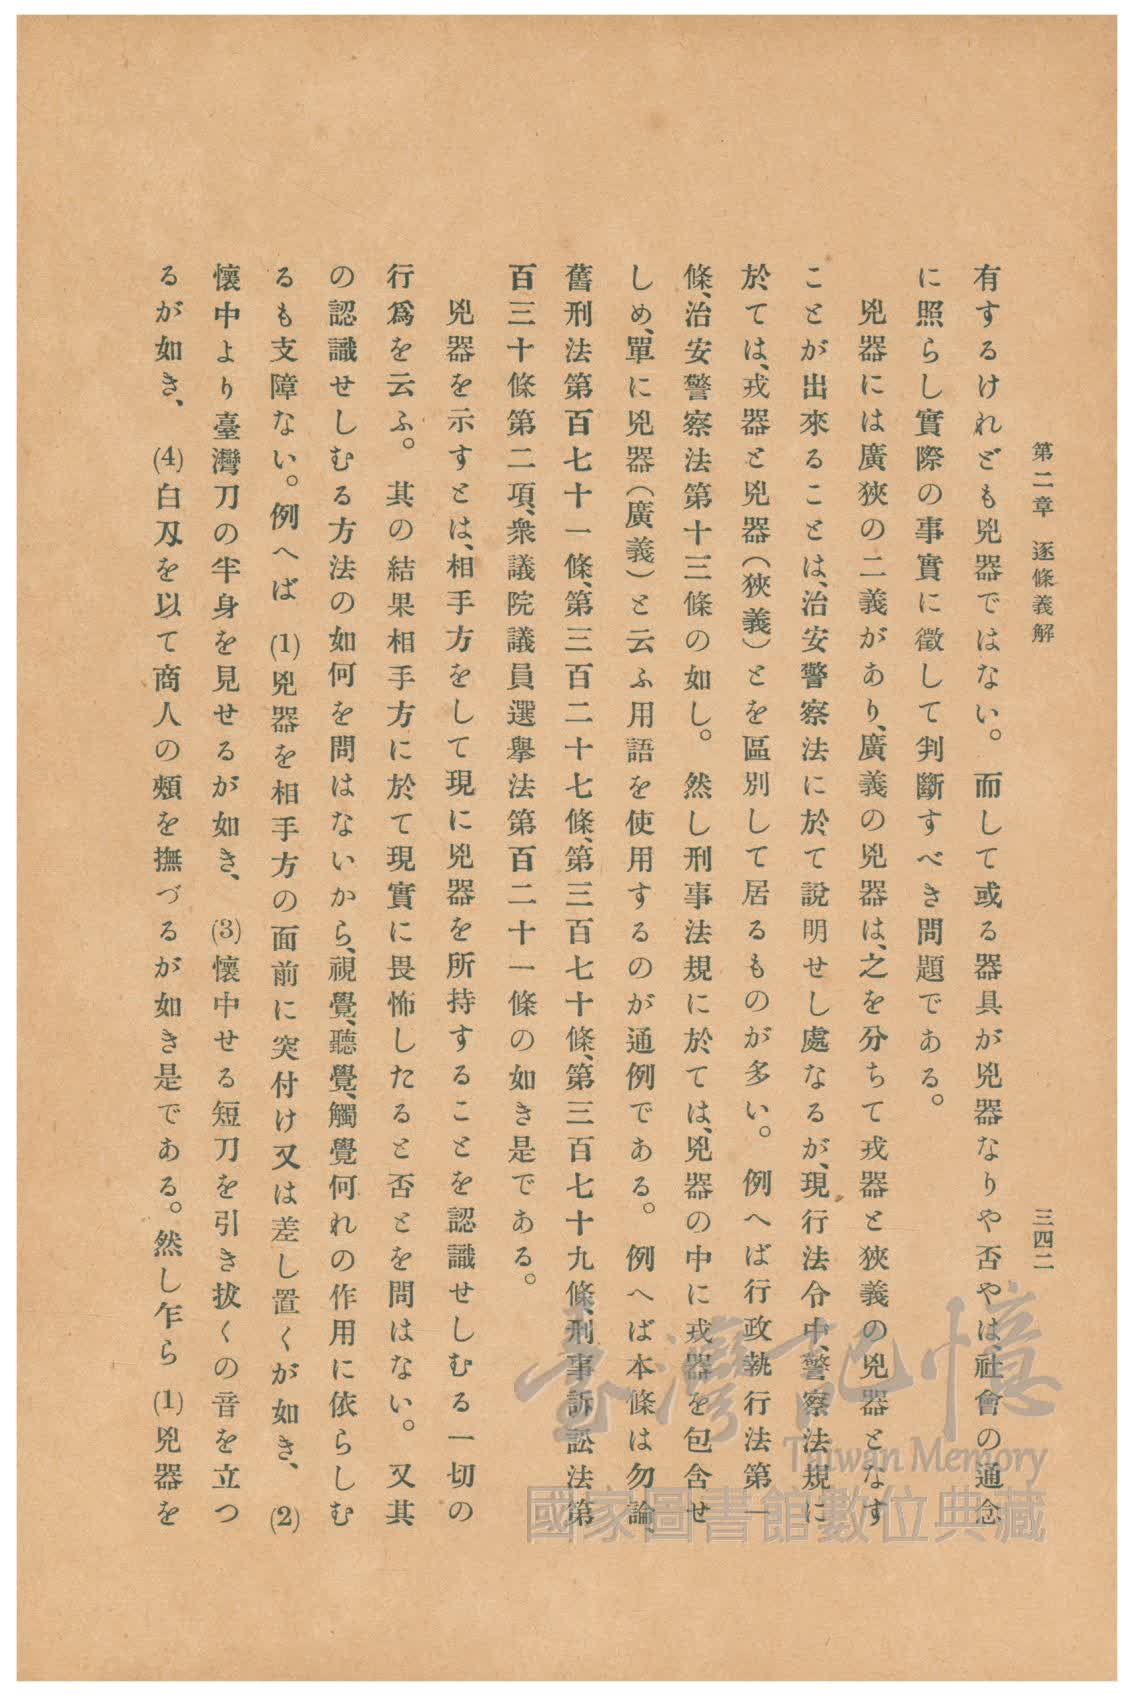 第二章　逐條義解
三四二
有するけれども兇器ではない。而して或る器具が兇器なりや否やは、社會の通念
に照らし實際の事實に徵して判斷すべき問題である。
兇器には廣狹の二義があり、廣義の兇器は、之を分ちて戎器と狹義の兇器となす
ことが出來ることは、治安警察法に於て說明せし處なるが、現行法令中、警察法規に
於ては、戎器と兇器(狹義)とを區別して居るものが多い。例へば行政執行法第一
條、治安警察法第十三條の如し。然し刑事法規に於ては、兇器の中に戎器を包含せ
しめ、單に兇器(廣義)と云ふ用語を使用するのが通例である。例へば本條は勿論、
舊刑法第百七十一條、第三百二十七條、第三百七十條、第三百七十九條、刑事訴訟法第
百三十條第二項、衆議院議員選擧法第百二十一條の如き是である。
兇器を示すとは、相手方をして現に兇器を所持することを認識せしむる一切の
行爲を云ふ。其の結果相手方に於て現實に畏怖したると否とを問はない。又其
の認識せしむる方法の如何を問はないから、視覺、聽覺、觸覺何れの作用に依らしむ
るも支障ない。例へば (1)兇器を相手方の面前に突付け又は差し置くが如き、 (2)
懷中より臺灣刀の半身を見せるが如き、 (3)懷中せる短刀を引き拔くの音を立つ
るが如き、 (4)白刄を以て商人の頰を撫づるが如き是である。然し乍ら (1)兇器を
臺灣記憶
Taiwan Memory
國家圖書館數位典藏